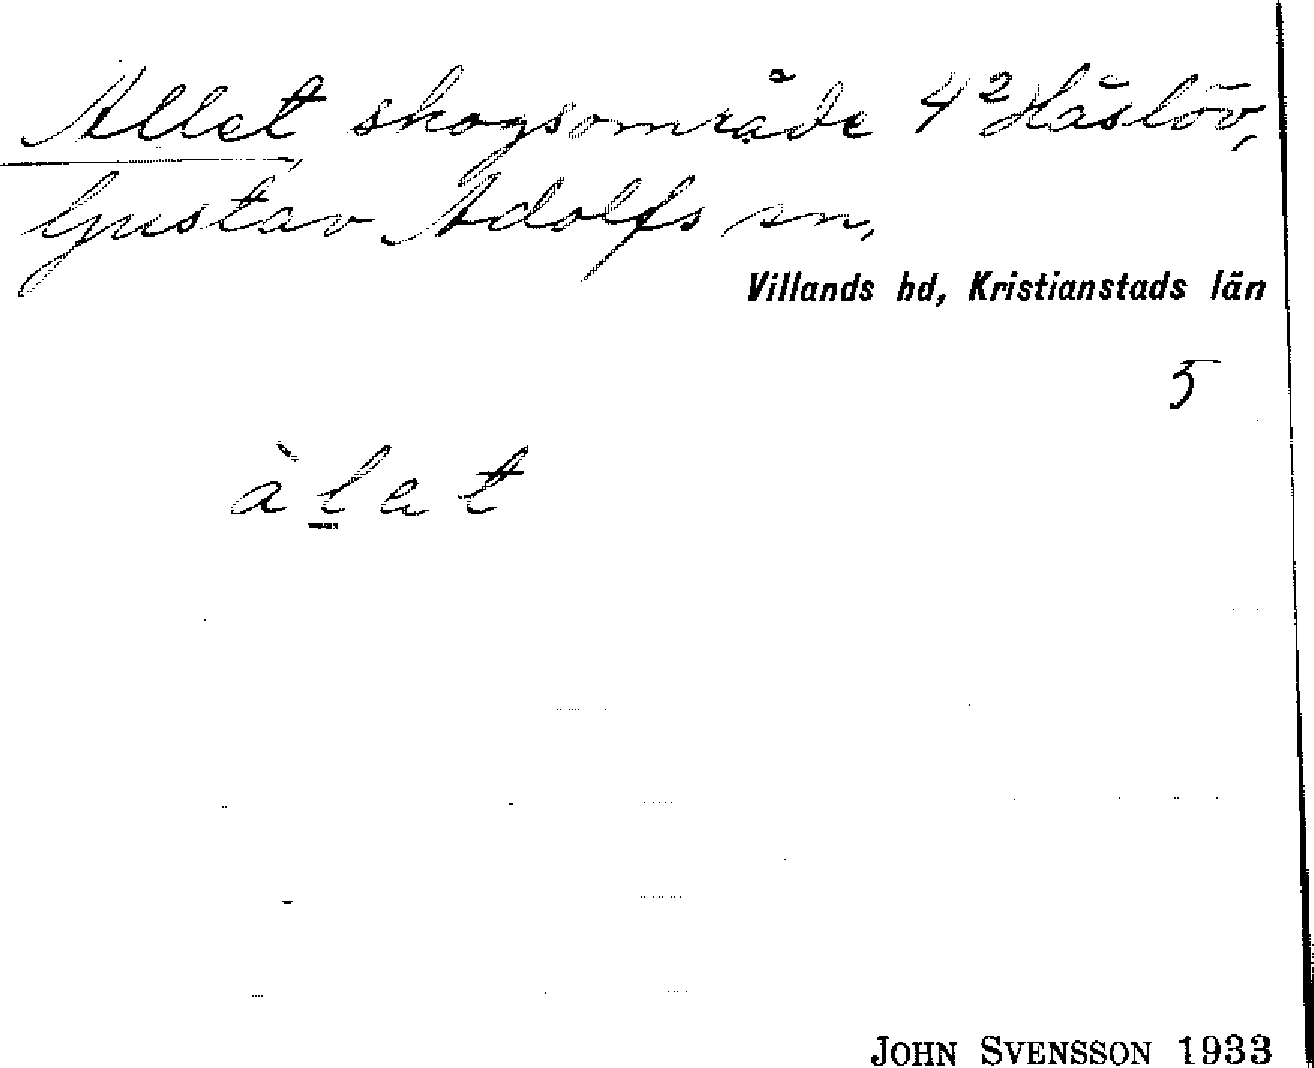 Allet skogsområde 4² Häslöv,
Gustav Adolfs sn,
Villands hd, Kristianstads län
5
àlet
JOHN SVENSSON 1933